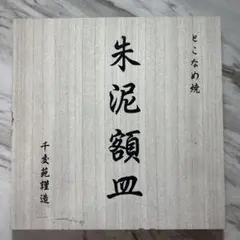 とこなめ焼
朱泥額皿
千支苑謹造